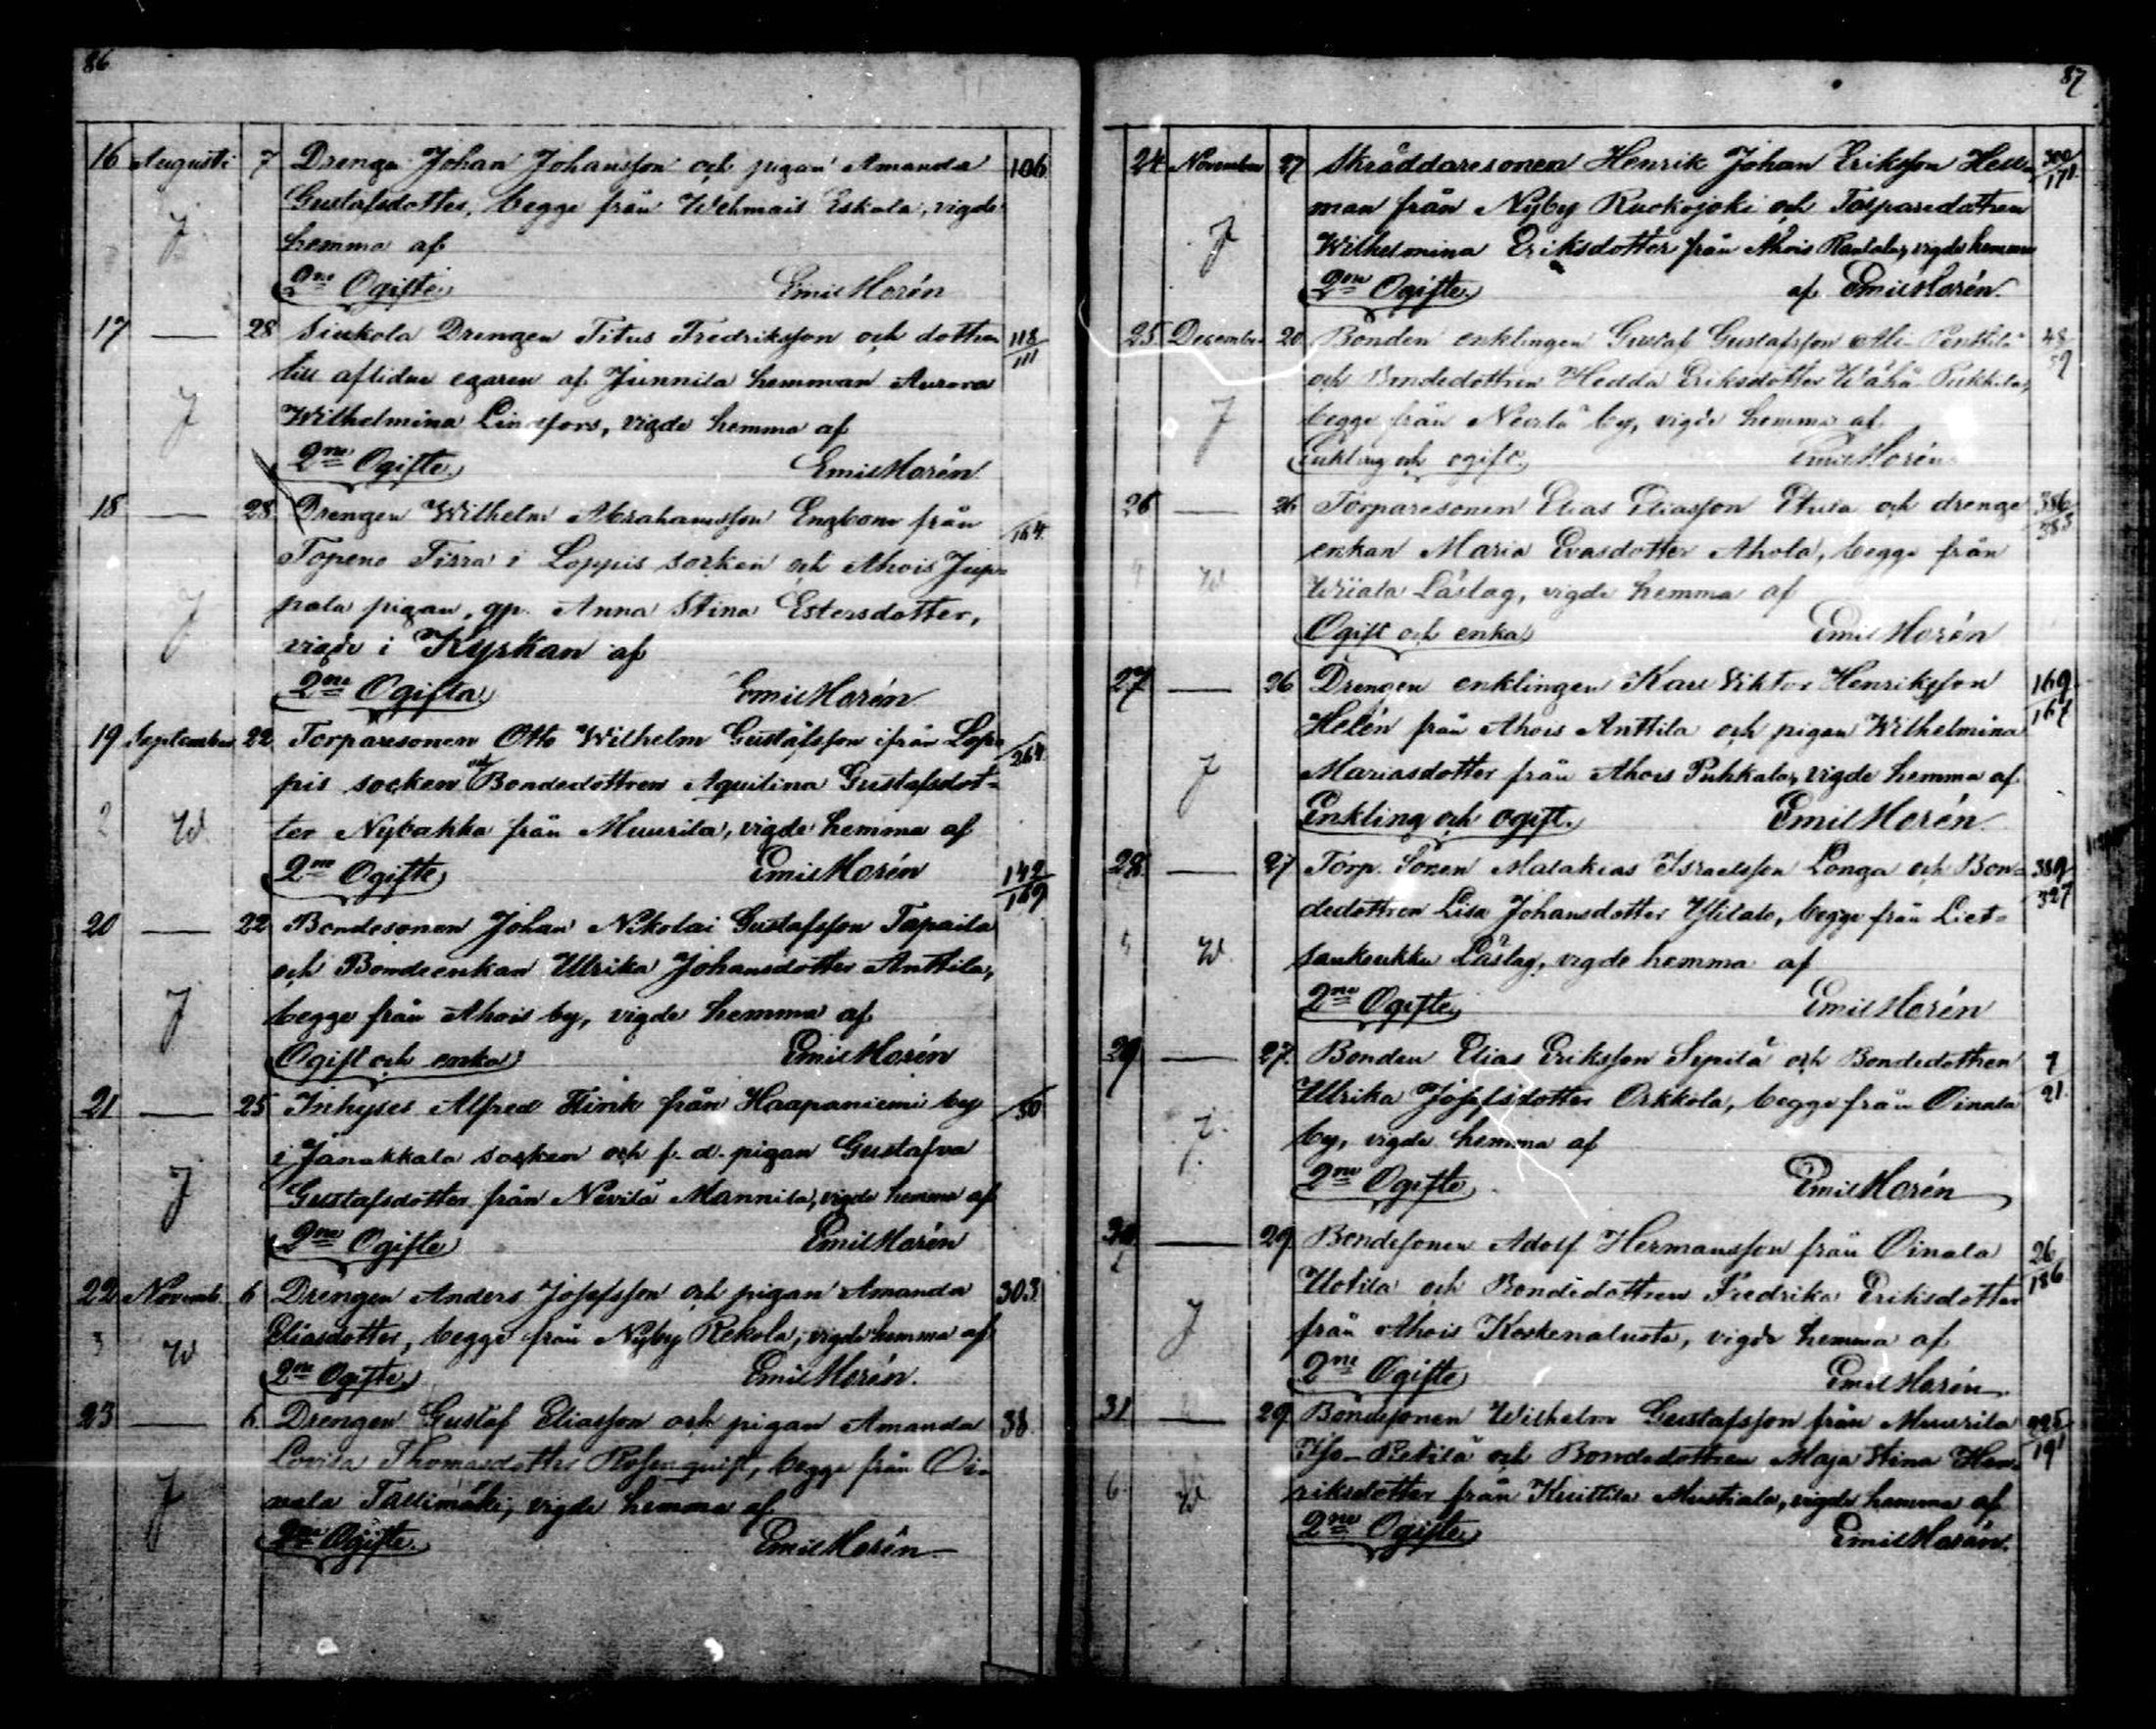 86
16 Augusti 7 Drengen Johan Johansson och pigan Amanda 106
Gustafsdotter, begge från Wehmais Eskola, vigde
J hemma af
2ne Ogifte. Emil Horén
17 — 28 Siukola Drengen Titus Fredriksson och dottren 118
till aflidne egaren af Junnila hemman Aurora 111
J Wilhelmina Lindfors, vigde hemma af
2ne Ogifte. Emil Horén
18 — 28 Drengen Wilhelm Abrahamsson Engbom från 164
Topeno Tirra i Loppis socken och Ahois Jup-
J pala pigan, gp. Anna Stina Estersdotter,
vigde i Kyrkan af
2ne Ogifta. Emil Horén
19 September 22 Torparesonen Otto Wilhelm Gustafsson ifrån Lop- 264
pis socken och Bondedottren Aquilina Gustafsdot-
2 W. ter Nybakka från Muurila, vigde hemma af
2ne Ogifte. Emil Horén
20 — 22 Bondesonen Johan Nikolai Gustafsson Tapaila 142/169
och Bondeenkan Ullrika Johansdotter Anttila,
J begge från Ahois by, vigde hemma af
Ogift och enka. Emil Horén
21 — 25 Inhyses Alfred Flink från Haapaniemi by 50
i Janakkala socken och f. d. pigan Gustafva
J Gustafsdotter från Nevilä Mannila, vigde hemma af
2ne Ogifte Emil Horén
22 Novemb. 6 Drengen Anders Josefsson och pigan Amanda 303.
3 W Eliasdotter, begge från Nyby Rekola, vigde hemma af
2ne Ogifte. Emil Horén.
23 — 6. Drengen Gustaf Eliasson och pigan Amanda 38.
Lovisa Thomasdotter Rosenquist, begge från Oi-
J nala Tallimäki, vigde hemma af
2ne Ogifte. Emil Horén
87
24 November 27 Skräddaresonen Henrik Johan Eriksson Hell- 300/171.
man från Nyby Ruokojoki och Torparedottren
J Wilhelmina Eriksdotter från Ahois Rantala, vigde hemma
2ne Ogifte. af Emil Horén.
25 December 20 Bonden enklingen Gustaf Gustafsson Ali-Penttilä 48
och Bondedottren Hedda Eriksdotter Wähä-Pukkila, 59
J begge från Nevilä by, vigde hemma af
Enkling och ogift. Emil Horén.
26 — 26 Torparesonen Elias Eliasson och drenge 386
enkan Maria Evasdotter Ahola, begge från 383
4 W Wiiala Låslag, vigde hemma af
Ogift och enka Emil Horén
27 — 26 Drengen enklingen Karl Viktor Henriksson 169.
Helén från Ahois Anttila och pigan Wilhelmina 167
J Mariasdotter från Ahois Puhkala, vigde hemma af
Enkling och ogift. Emil Horén.
28 — 27 Torp. Sonen Malakias Israelsson Longa och Bon- 389
dedottren Lisa Johansdotter Ylitalo, begge från Liet- 327
5 W. saukeukku Låslag, vigde hemma af
2ne Ogifte. Emil Horén
29 — 27. Bonden Elias Eriksson Sepilä och Bondedottren 7
Ullrika Josefsdotter Orkkola, begge från Oinala 21
J. by, vigde hemma af
2ne Ogifte. Emil Horén
30 — 29 Bondesonen Adolf Hermansson från Oinala 26
Uotila och Bondedottren Fredrika Eriksdotter 186
J från Ahois Koskenalusta, vigde hemma af
2ne Ogifte Emil Horén
31 — 29 Bondesonen Wilhelm Gustafsson från Muurila 225
Iso-Rekilä och Bondedottren Maja Stina Hen- 191
6. W riksdotter från Kuittila Mustiala, vigde hemma af
2ne Ogifte. Emil Horén.